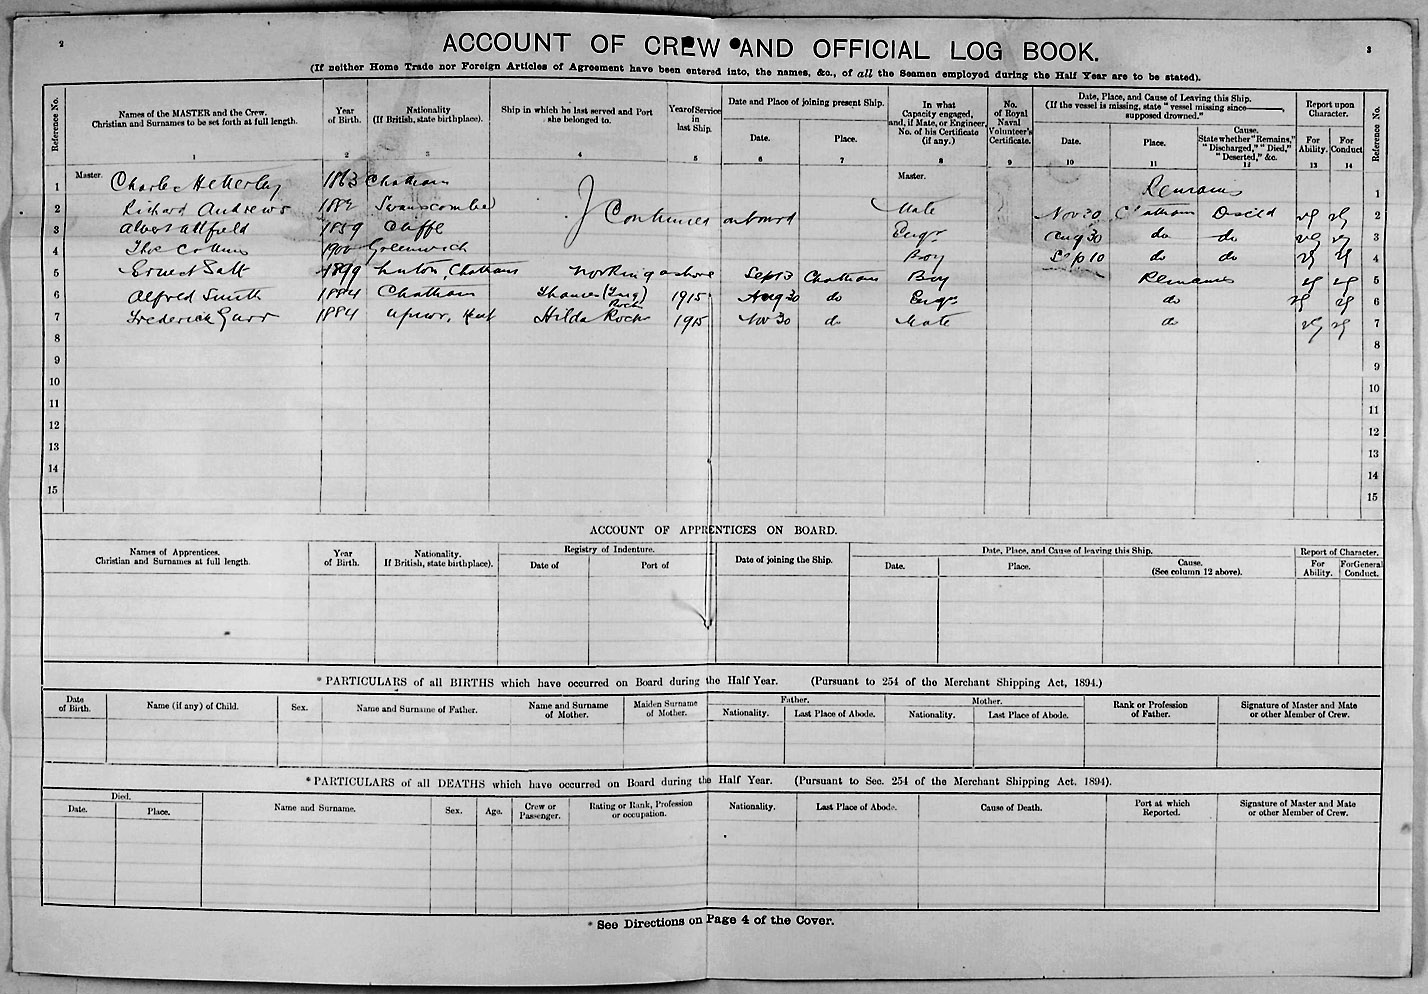 2
3
ACCOUNT OF CREW AND OFFICIAL LOG BOOK.
(If neither Home Trade nor Foreign Articles of Agreement have been entered into, the names, &c., of all the Seamen employed during the Half Year are to be stated).
Reference No. Names of the MASTER and the Crew. Christian and Surnames to be set forth at full length. Year of Birth. Nationality (If British, state birthplace). Ship in which he last served and Port she belonged to. Year of Service in last Ship. Date and Place of joining present Ship. In what Capacity engaged, and, if Mate, or Engineer, No. of his Certificate (if any.) No. of Royal Naval Volunteer's Certificate. Date, Place, and Cause of Leaving this Ship. (If the vessel is missing, state "vessel missing since ———, supposed drowned." Report upon Character. Reference No.
Date. Place. Date. Place. Cause. State whether "Remains," "Discharged," "Died," "Deserted," &c. For Ability. For Conduct
1 2 3 4 5 6 7 8 9 10 11 12 13 14
1 Master. Charles Hetterley 1863 Chatham Master. Remains 1
2 Richard Andrews Swanscombe Continued onboard Mate Nov 30 Chatham Discd vg vg 2
3 Albert Allfield 1859 Cliffe Engr Aug 30 do do vg vg 3
4 Thos Collins 1900 Greenwich Boy Sep 10 do do vg vg 4
5 Ernest Salt 1899 Luton, Chatham Working ashore Sept 3 Chatham Boy Remains vg vg 5
6 Alfred Smith 1884 Chatham Thames (Tug) Rochr 1915 Aug 30 do Engr do vg vg 6
7 Frederick Garr 1884 Upnor, Kent Hilda Rochr 1915 Nov 30 do Mate do vg vg 7
8 8
9 9
10 10
11 11
12 12
13 13
14 14
15 15
ACCOUNT OF APPRENTICES ON BOARD.
Names of Apprentices. Christian and Surnames at full length. Year of Birth. Nationality. If British, state birthplace). Registry of Indenture. Date of joining the Ship. Date, Place, and Cause of leaving this Ship. Report of Character.
Date of Port of Date. Place. Cause. (See column 12 above). For Ability. For General Conduct.
* PARTICULARS of all BIRTHS which have occurred on Board during the Half Year. (Pursuant to 254 of the Merchant Shipping Act, 1894.)
Date of Birth. Name (if any) of Child. Sex. Name and Surname of Father. Name and Surname of Mother. Maiden Surname of Mother. Father. Mother. Rank or Profession of Father. Signature of Master and Mate or other Member of Crew.
Nationality. Last Place of Abode. Nationality. Last Place of Abode.
* PARTICULARS of all DEATHS which have occurred on Board during the Half Year. (Pursuant to Sec. 254 of the Merchant Shipping Act. 1894).
Died. Name and Surname. Sex. Age. Crew or Passenger. Rating or Rank, Profession or occupation. Nationality. Last Place of Abode. Cause of Death. Port at which Reported. Signature of Master and Mate or other Member of Crew.
Date. Place.
* See Directions on Page 4 of the Cover.